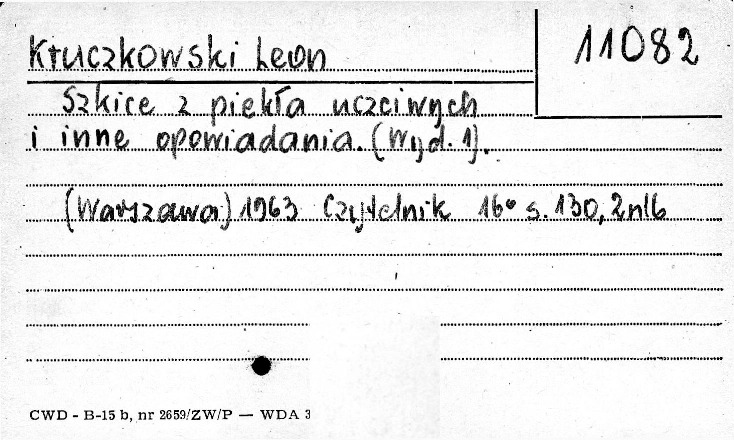 Kruczkowski Leon
11082
Szkice z piekła uczciwych
i inne opowiadania. (Wyd. 1).
(Warszawa) 1963 Czytelnik 16° s. 130, 2nlb
CWD - B-15 b, nr 2659/ZW/P — WDA 3